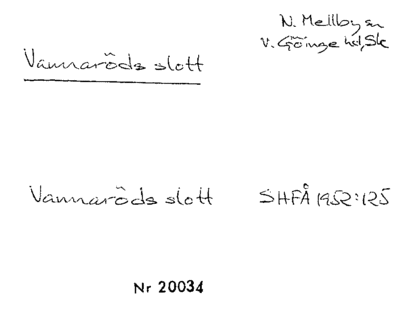 N. Mellby sn
V. Göinge hd, Sk
Vannaröds slott
Vannaröds slott SHFÅ 1952:125
Nr 20034